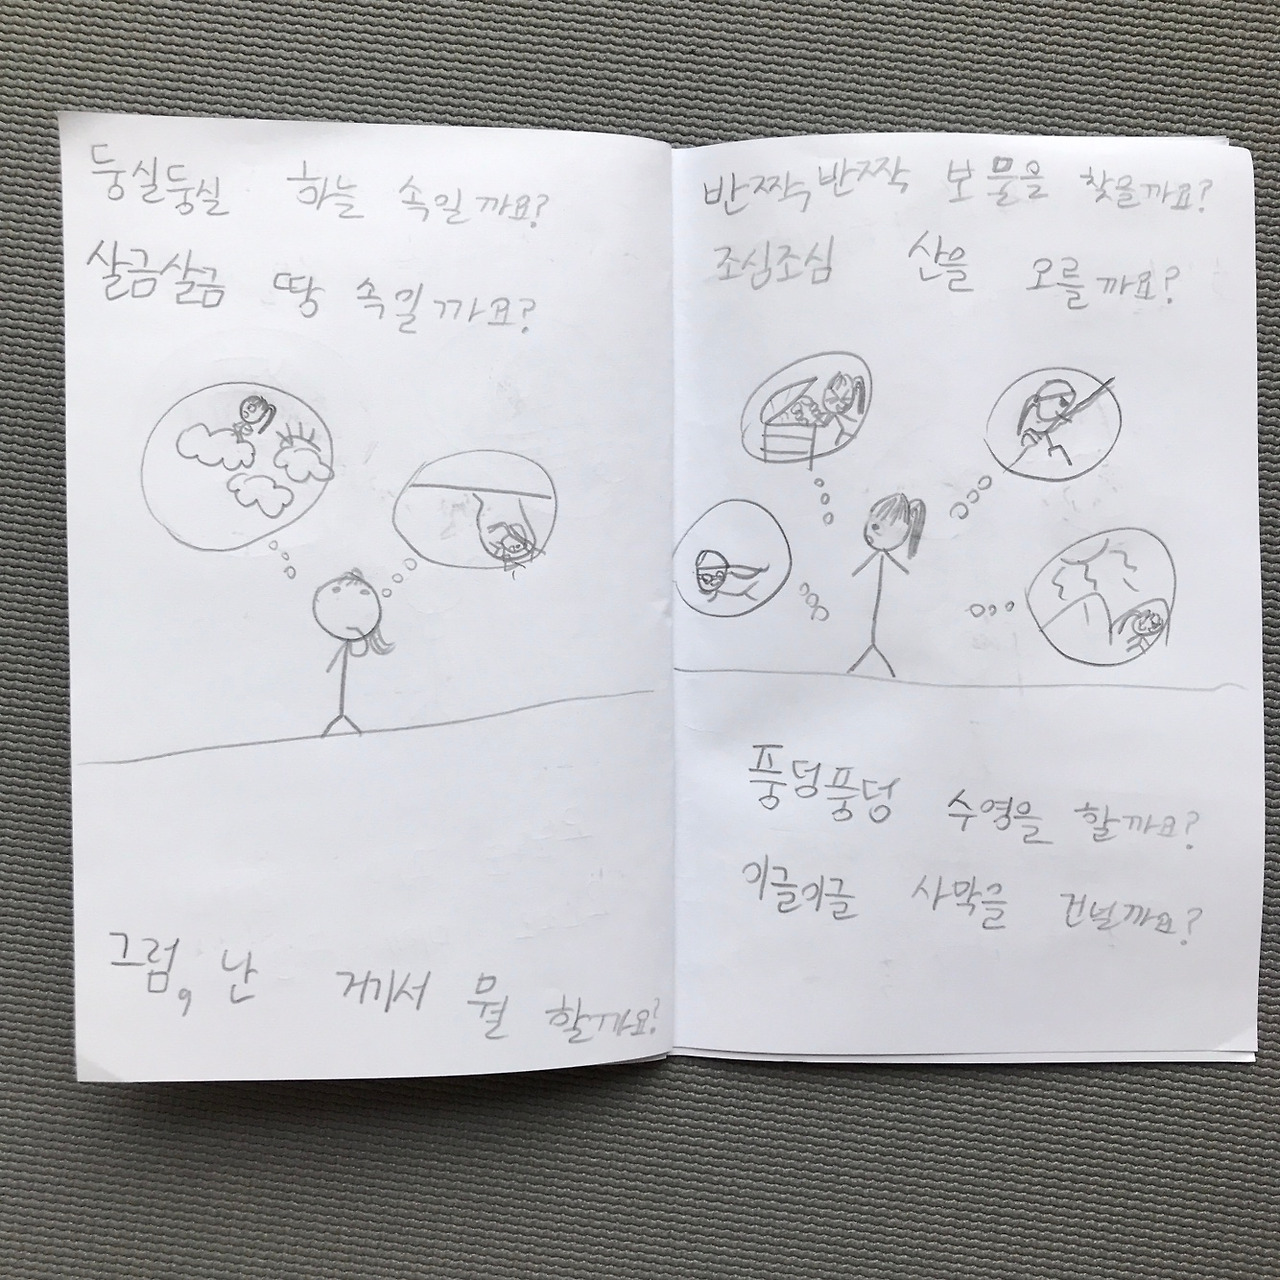 둥실둥실 하늘 속일까요?
살금살금 땅 속일까요?
그럼, 난 거기서 뭘 할까요?
반짝반짝 보물을 찾을까요?
조심조심 산을 오를까요?
풍덩풍덩 수영을 할까요?
이글이글 사막을 건널까요?